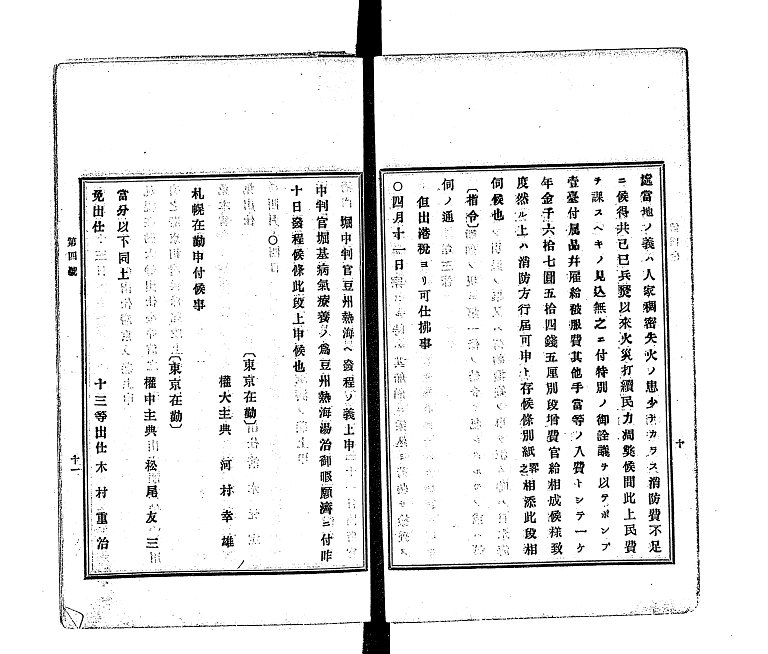 處當地ノ義ハ人家稠密失火ノ患少ナカラス消防費不足
ニ候得共已巳兵燹以來火災打續民力凋弊候間此上民費
ヲ課スヘキノ見込無之ニ付特別ノ御詮議ヲ以テポンプ
壹臺付属品幷雇給被服費其他手當等ノ入費トシテ一ケ
年金千六拾七圓五拾四錢五厘別段增費官給相成候樣致
度然ル上ハ消防方行屆可申ト存候條別紙畧之相添此段相
伺候也
〔指令〕
伺ノ通
但出港税ヨリ可仕拂事
〇四月十一日
十
堀中判官豆州熱海ヘ發程ノ義上申
中判官堀基病氣療養ノ爲豆州熱海湯治御暇願濟ニ付昨
十日發程候條此段上申候也
〇
〔東京在勤〕
權大主典 河村幸雄
札幌在勤申付候事
〔東京在勤〕
權中主典 松尾友三
當分以下同上
十三等出仕 木村重治
免出仕
第四號
十一